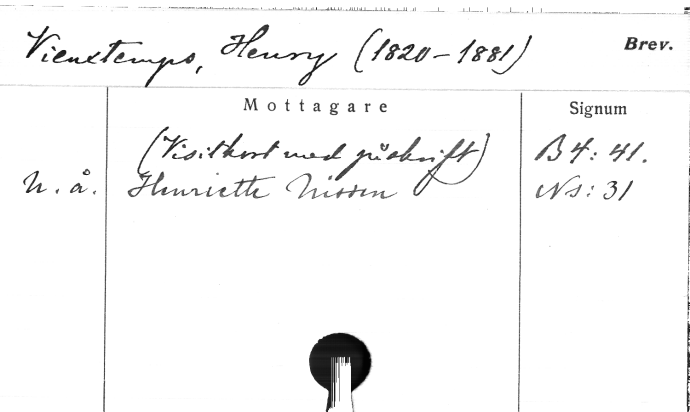 Vieuxtemps, Henry (1820-1881) Brev.
Mottagare Signum
(Visitkort med påskrift) B 4: 41.
U. å. Henriette Nissen Ns: 31